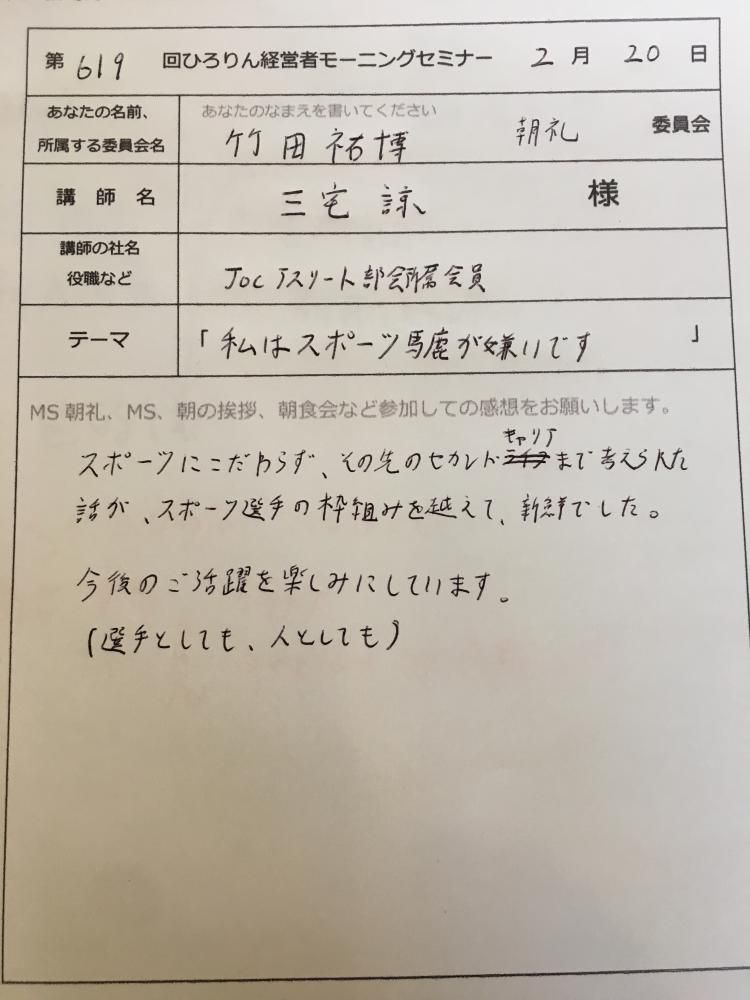 第 619 回ひろりん経営者モーニングセミナー 2 月 20 日
あなたの名前、
所属する委員会名
あなたのなまえを書いてください
竹田祐博 朝礼 委員会
講師名 三宅 諒 様
講師の社名
役職など
JOC アスリート部会所属会員
テーマ 「私はスポーツ馬鹿が嫌いです 」
MS 朝礼、MS、朝の挨拶、朝食会など参加しての感想をお願いします。
キャリア
スポーツにこだわらず、その先のセカンドライフまで考えられた
話が、スポーツ選手の枠組みを越えて、新鮮でした。
今後のご活躍を楽しみにしています。
(選手としても、人としても)